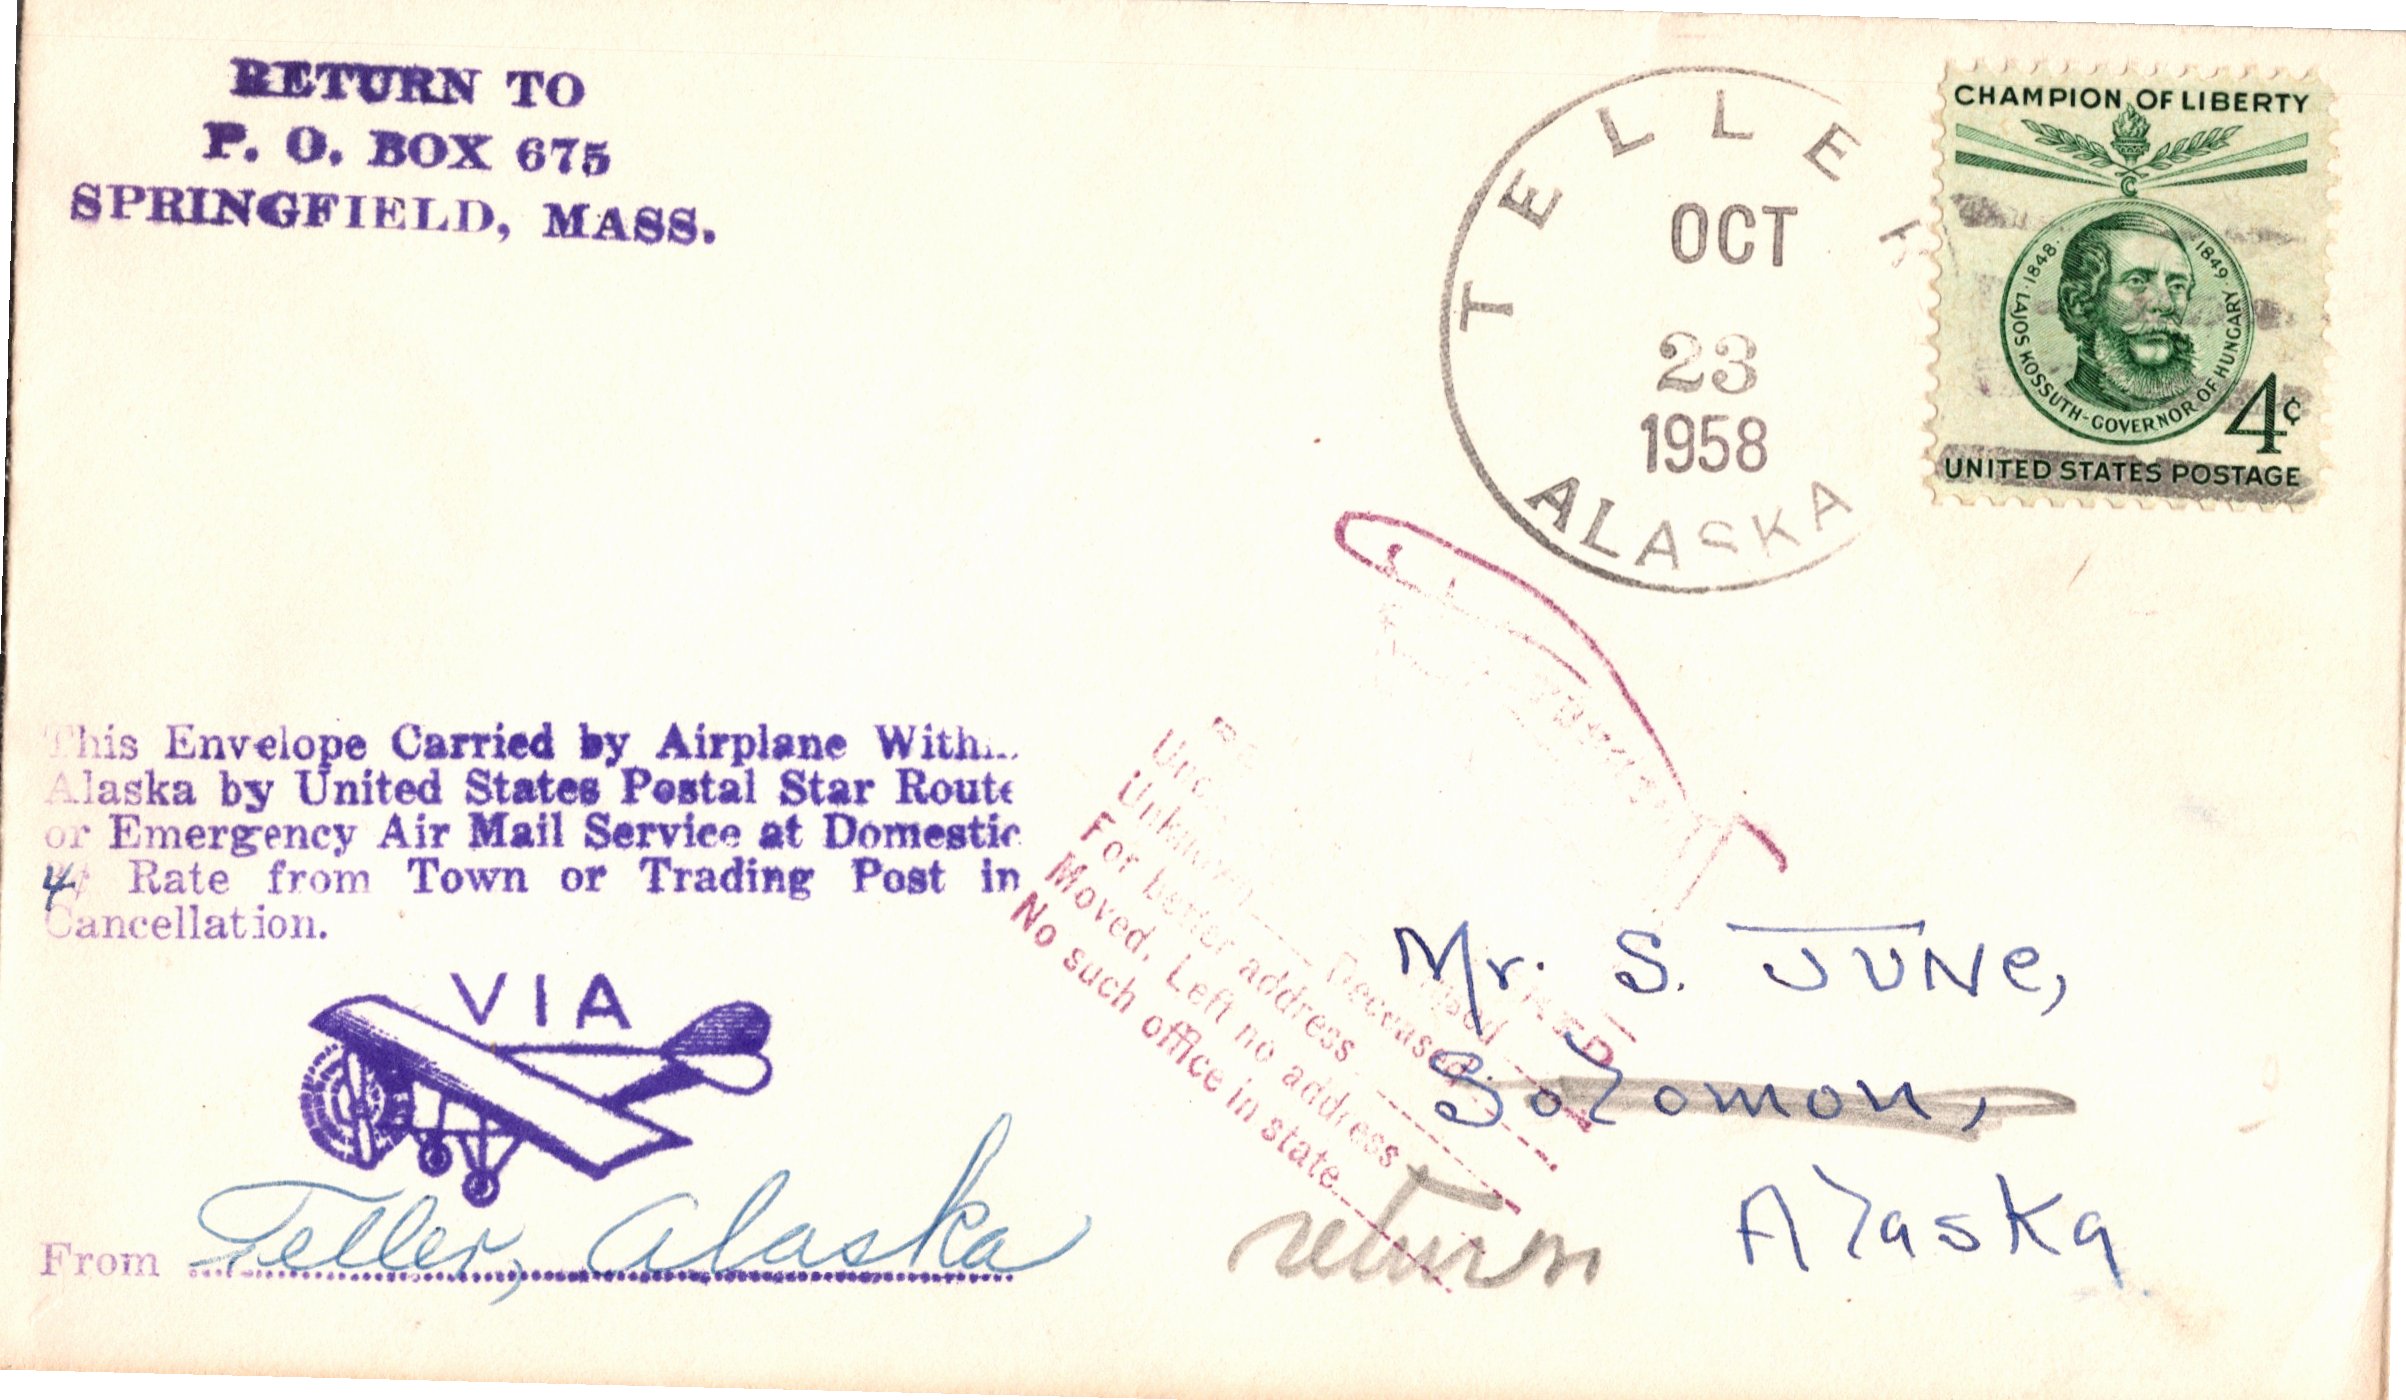 RETURN TO
P. O. BOX 675
SPRINGFIELD, MASS.
TELLER
OCT
23
1958
ALASKA
CHAMPION OF LIBERTY
C
1848 · LAJOS KOSSUTH - GOVERNOR OF HUNGARY · 1849
4¢
UNITED STATES POSTAGE
This Envelope Carried by Airplane
Alaska by United States Postal Star Route
or Emergency Air Mail Service at Domestic
4¢ Rate from Town or Trading Post in
Cancellation.
VIA
From Teller, Alaska
Unknown
Deceased
For better address
Moved, Left no address
No such office in state
return
Mr. S. JUNe,
Solomon,
Alaska